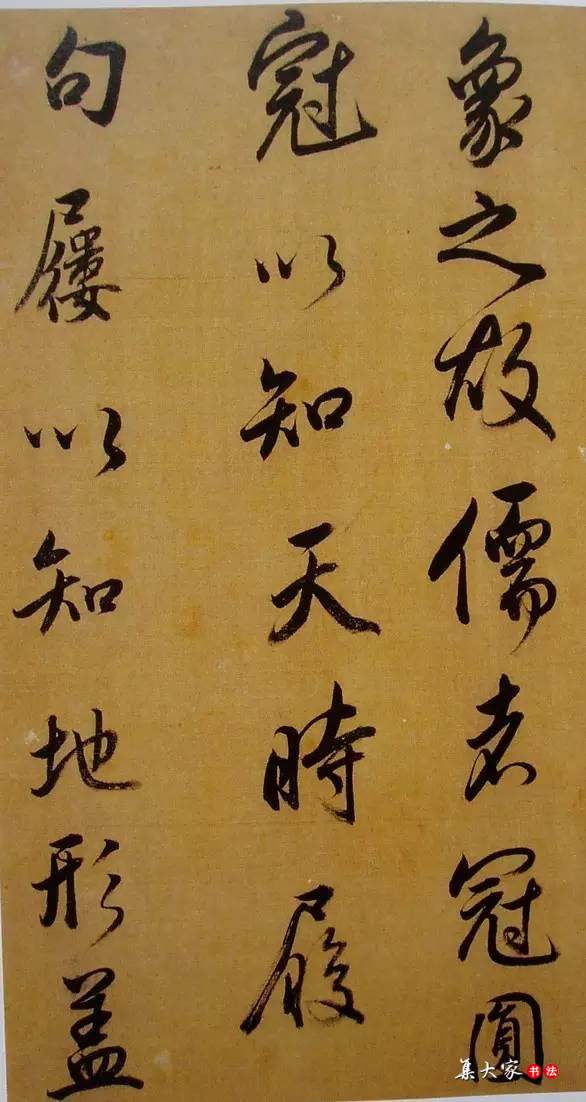 象之故儒者冠圓
冠以知天時履
句屨以知地形蓋
集大家书法